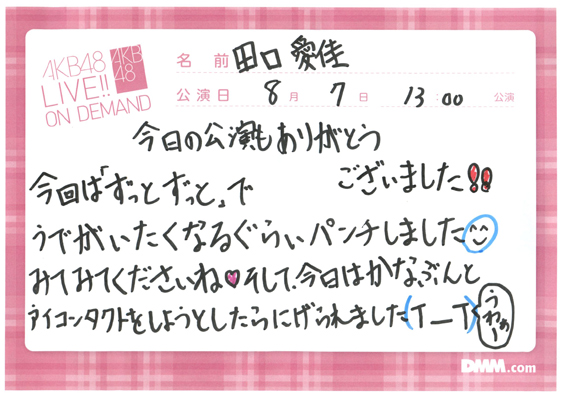 AKB48
LIVE!!
ON DEMAND
AKB
48
名前 田口 愛佳
公演日 8月 7日 13:00 公演
今日の公演もありがとう
ございました!!
今回は「ずっと ずっと」で
うでがいたくなるぐらいパンチしました
みてみてくださいね♥そして、今日はかなぶんと
アイコンタクトをしようとしたらにげられました(T_T)
うわぁー
DMM.com